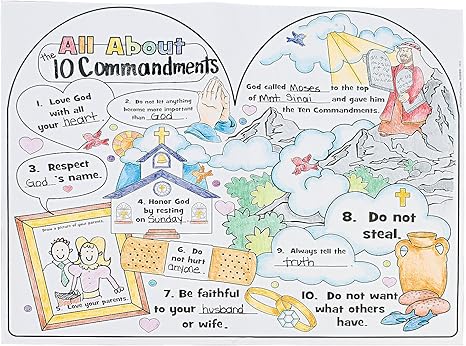 All About
the 10 Commandments
God called Moses to the top
of Mnt. Sinai and gave him
the Ten Commandments.
1. Love God
with all
your heart
2. Do not let anything
become more important
than God
3. Respect
God's name.
4. Honor God
by resting
on Sunday.
Draw a picture of your parents.
5. Love your parents.
6. Do
not hurt
anyone.
7. Be faithful
to your husband
or wife.
8. Do not
steal.
9. Always tell the
truth
10. Do not want
what others
have.